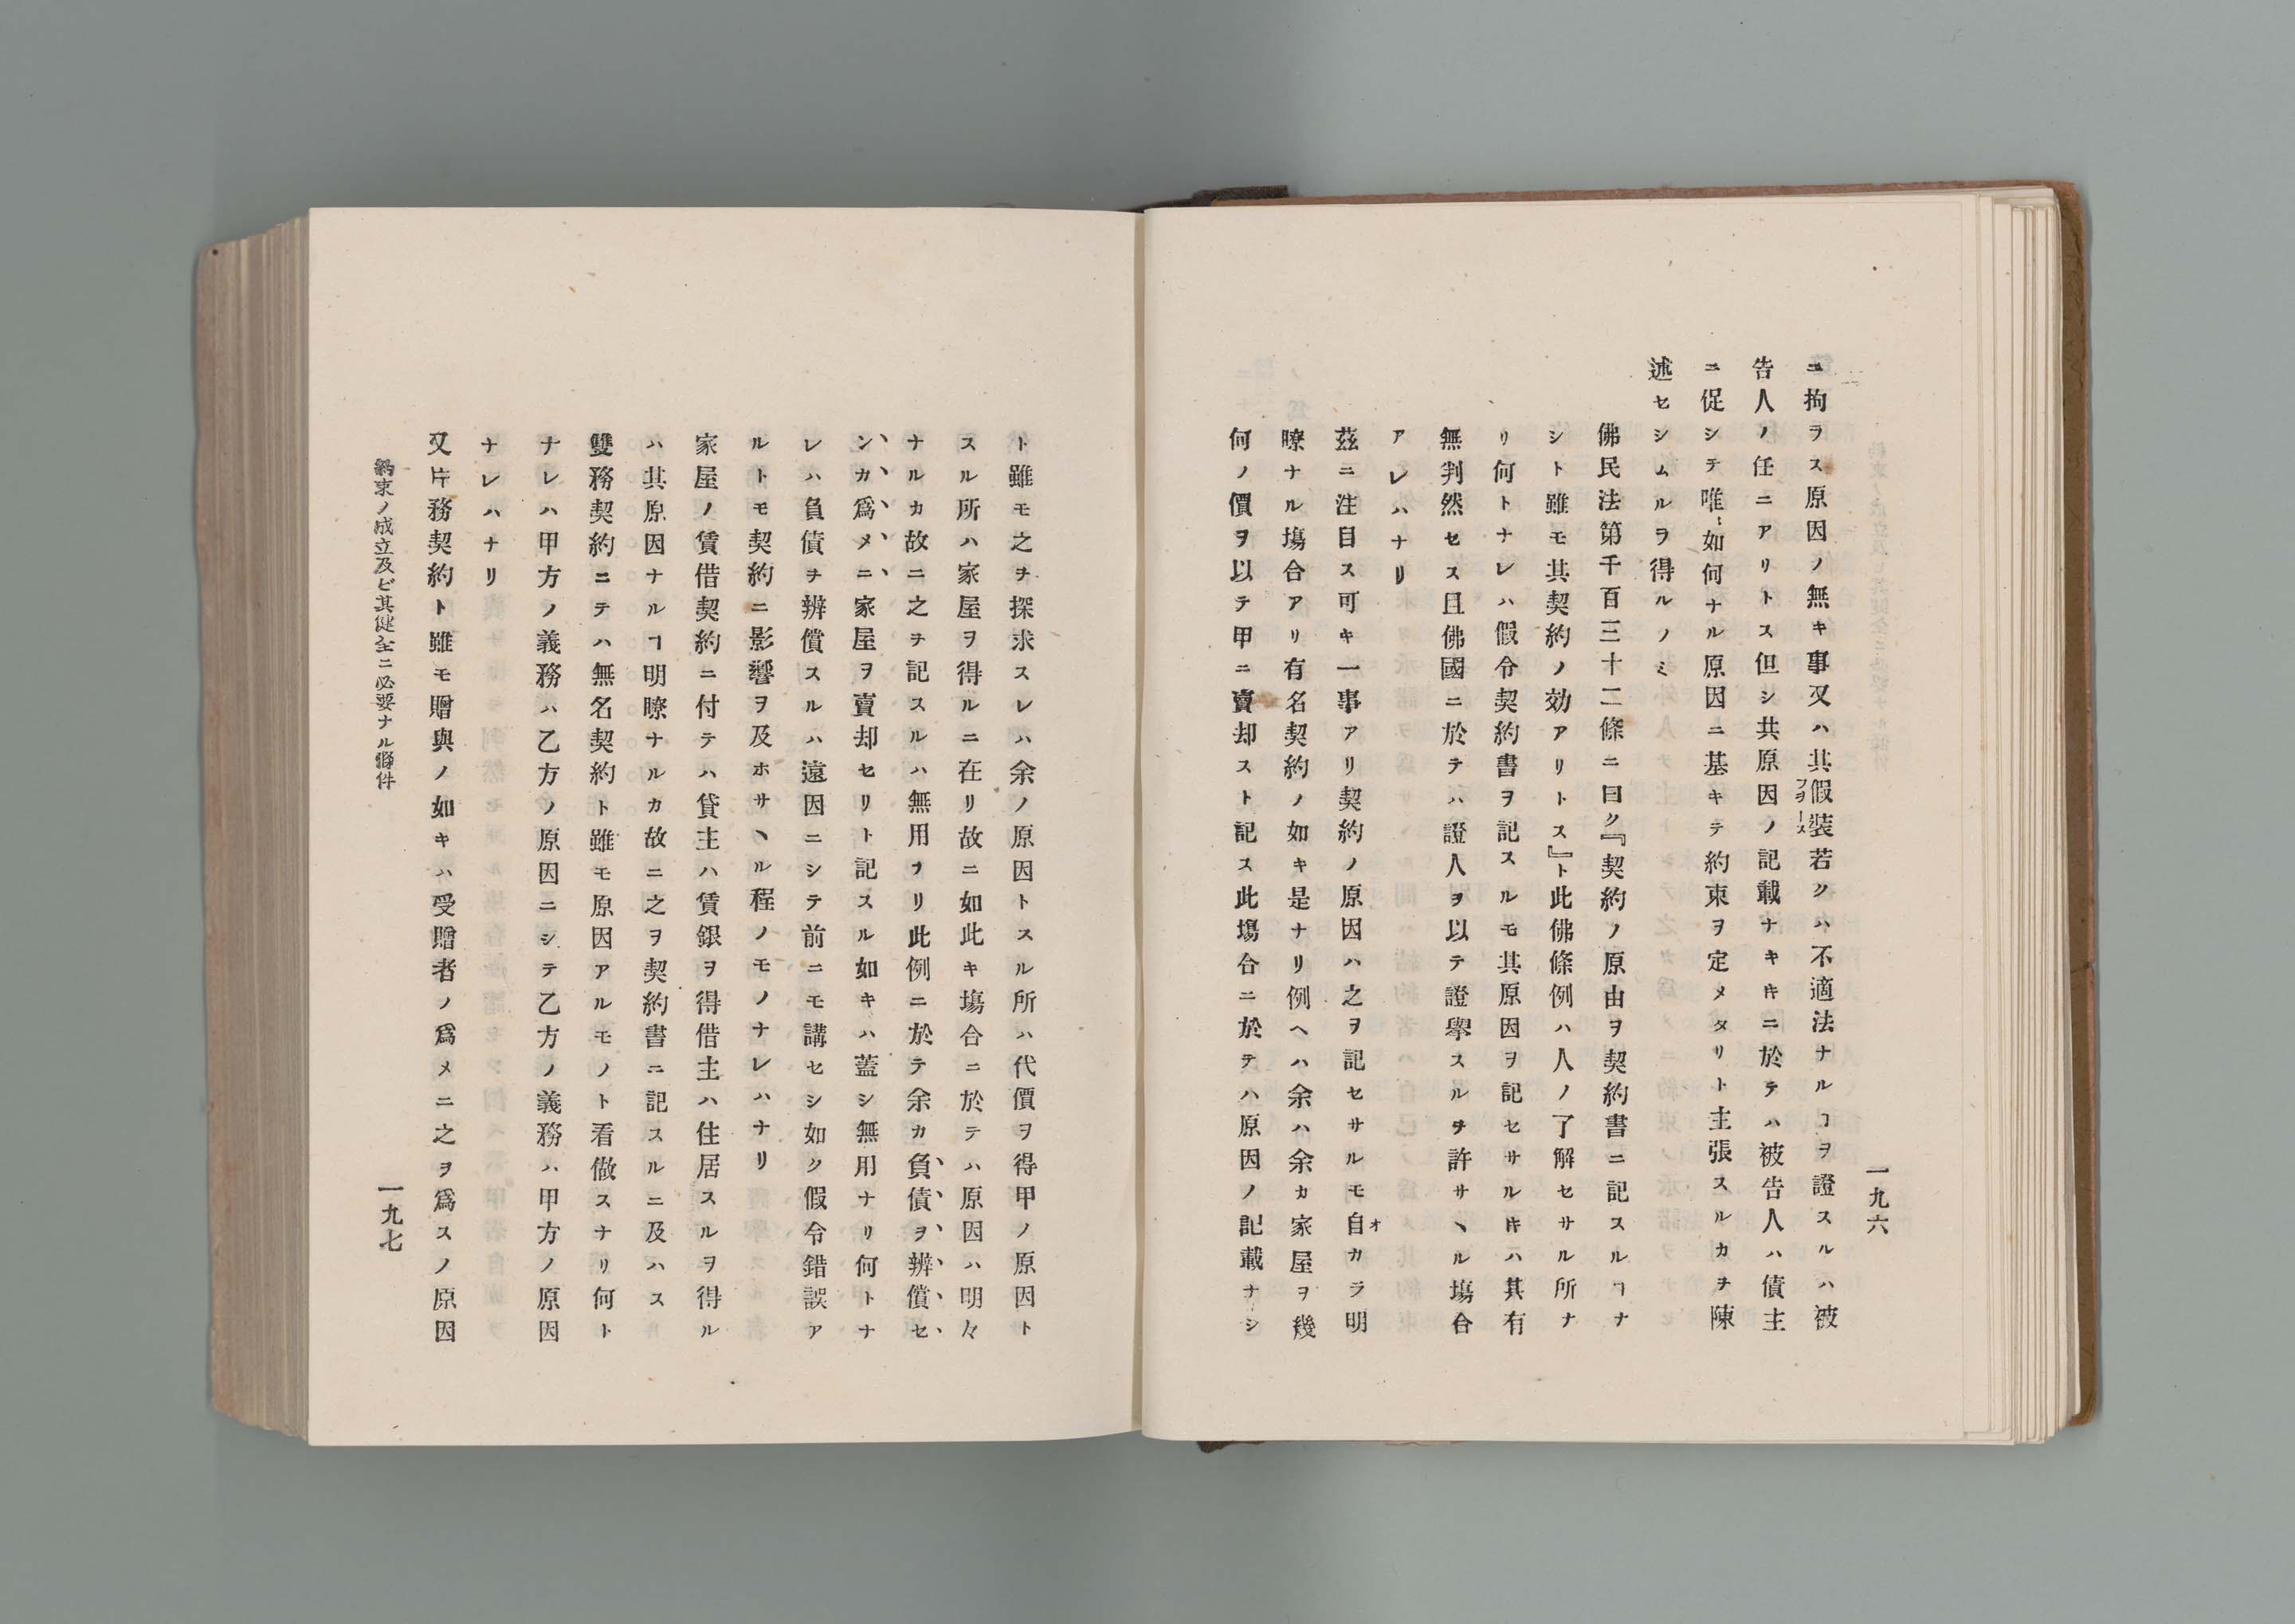 一九六
ニ拘ラス原因ノ無キ事又ハ其假裝若クハ不適法ナルヿヲ證スルハ被
フヲース
告人ノ任ニアリトス但シ其原因ノ記載ナキキニ於テハ被告人ハ債主
ニ促シテ唯如何ナル原因ニ基キテ約束ヲ定メタリト主張スルカヲ陳
述セシムルヲ得ルノミ
佛民法第千百三十二條ニ曰ク『契約ノ原由ヲ契約書ニ記スルヿナ
シト雖モ其契約ノ効アリトス』ト此佛條例ハ人ノ了解セサル所ナ
リ何トナレハ假令契約書ヲ記スルモ其原因ヲ記セサルキハ其有
無判然セス且佛國ニ於テハ證人ヲ以テ證擧スルヲ許サヽル塲合
アレハナリ
茲ニ注目ス可キ一事アリ契約ノ原因ハ之ヲ記セサルモ自カラ明
オ
瞭ナル塲合アリ有名契約ノ如キ是ナリ例ヘハ余ハ余カ家屋ヲ幾
何ノ價ヲ以テ甲ニ賣却スト記ス此塲合ニ於テハ原因ノ記載ナシ
ト雖モ之ヲ探求スレハ余ノ原因トスル所ハ代價ヲ得甲ノ原因ト
スル所ハ家屋ヲ得ルニ在リ故ニ如此キ塲合ニ於テハ原因ハ明々
ナルカ故ニ之ヲ記スルハ無用フリ此例ニ於テ余カ負債ヲ辨償セ
ンカ爲メニ家屋ヲ賣却セリト記スル如キハ蓋シ無用ナリ何トナ
レハ負債ヲ辨償スルハ遠因ニシテ前ニモ講セシ如ク假令錯誤ア
ルトモ契約ニ影響ヲ及ホサヽル程ノモノナレハナリ
家屋ノ賃借契約ニ付テハ貸主ハ賃銀ヲ得借主ハ住居スルヲ得ル
ハ其原因ナルヿ明瞭ナルカ故ニ之ヲ契約書ニ記スルニ及ハス
雙務契約ニテハ無名契約ト雖モ原因アルモノト看做スナリ何ト
ナレハ甲方ノ義務ハ乙方ノ原因ニシテ乙方ノ義務ハ甲方ノ原因
ナレハナリ
又片務契約ト雖モ贈與ノ如キハ受贈者ノ爲メニ之ヲ爲スノ原因
約束ノ成立及ビ其健全ニ必要ナル條件
一九七